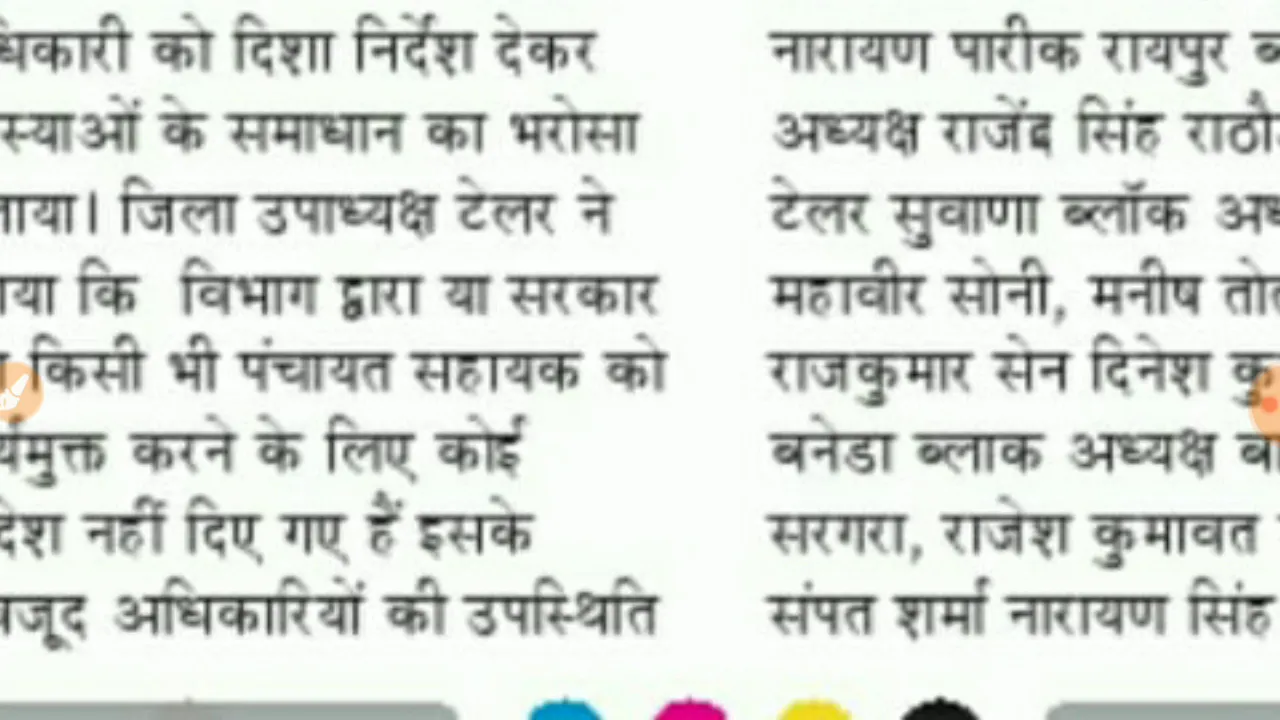 धिकारी को दिशा निर्देश देकर
स्याओं के समाधान का भरोसा
ाया। जिला उपाध्यक्ष टेलर ने
ाया कि विभाग द्वारा या सरकार
किसी भी पंचायत सहायक को
र्यमुक्त करने के लिए कोई
देश नहीं दिए गए हैं इसके
वजूद अधिकारियों की उपस्थिति
नारायण पारीक रायपुर
अध्यक्ष राजेंद्र सिंह राठौ
टेलर सुवाणा ब्लॉक अध
महावीर सोनी, मनीष तो
राजकुमार सेन दिनेश कु
बनेडा ब्लाक अध्यक्ष
सरगरा, राजेश कुमावत
संपत शर्मा नारायण सिंह